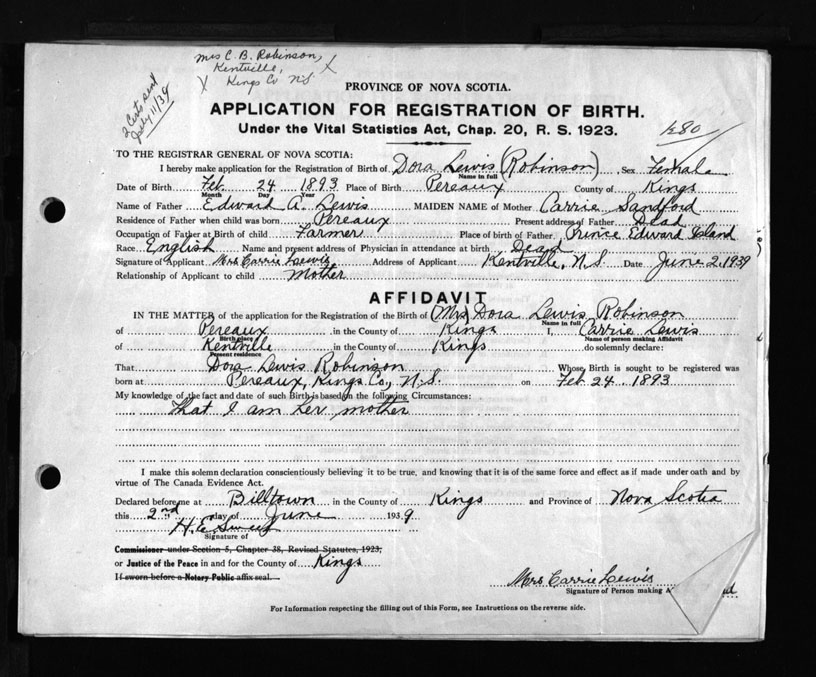 Mrs C. B. Robinson,
Kentville,
Kings Co N.S.
2 Certs sent
July 11/39
PROVINCE OF NOVA SCOTIA.
APPLICATION FOR REGISTRATION OF BIRTH.
Under the Vital Statistics Act, Chap. 20, R. S. 1923.
TO THE REGISTRAR GENERAL OF NOVA SCOTIA:
I hereby make application for the Registration of Birth of Dora Lewis (Robinson) Sex Female
Name in full
Date of Birth Feb. 24 1893 Place of Birth Pereaux County of Kings
Month Day Year
Name of Father Edward A. Lewis MAIDEN NAME of Mother Carrie Sandford
Residence of Father when child was born Pereaux Present address of Father Dead
Occupation of Father at Birth of child Farmer Place of birth of Father Prince Edward Island
Race English Name and present address of Physician in attendance at birth Dead
Signature of Applicant Mrs Carrie Lewis Address of Applicant Kentville, N.S. Date June 2, 1939
Relationship of Applicant to child Mother
AFFIDAVIT
IN THE MATTER of the application for the Registration of the Birth of (Mrs) Dora Lewis Robinson
Name in full
of Pereaux in the County of Kings I, Carrie Lewis
Birth place Name of person making Affidavit
of Kentville in the County of Kings do solemnly declare:
Present residence
That Dora Lewis Robinson Whose Birth is sought to be registered was
born at Pereaux, Kings Co, N.S. on Feb 24. 1893
My knowledge of the fact and date of such Birth is based on the following Circumstances:
That I am her mother
I make this solemn declaration conscientiously believing it to be true, and knowing that it is of the same force and effect as if made under oath and by
virtue of The Canada Evidence Act.
Declared before me at Billtown in the County of Kings and Province of Nova Scotia
this 2nd day of June 1939
H. E. Sweet
Signature of
Commissioner under Section 5, Chapter 38, Revised Statutes, 1923,
or Justice of the Peace in and for the County of Kings
If sworn before a Notary Public affix seal.
Mrs Carrie Lewis
Signature of Person making A
For Information respecting the filling out of this Form, see Instructions on the reverse side.